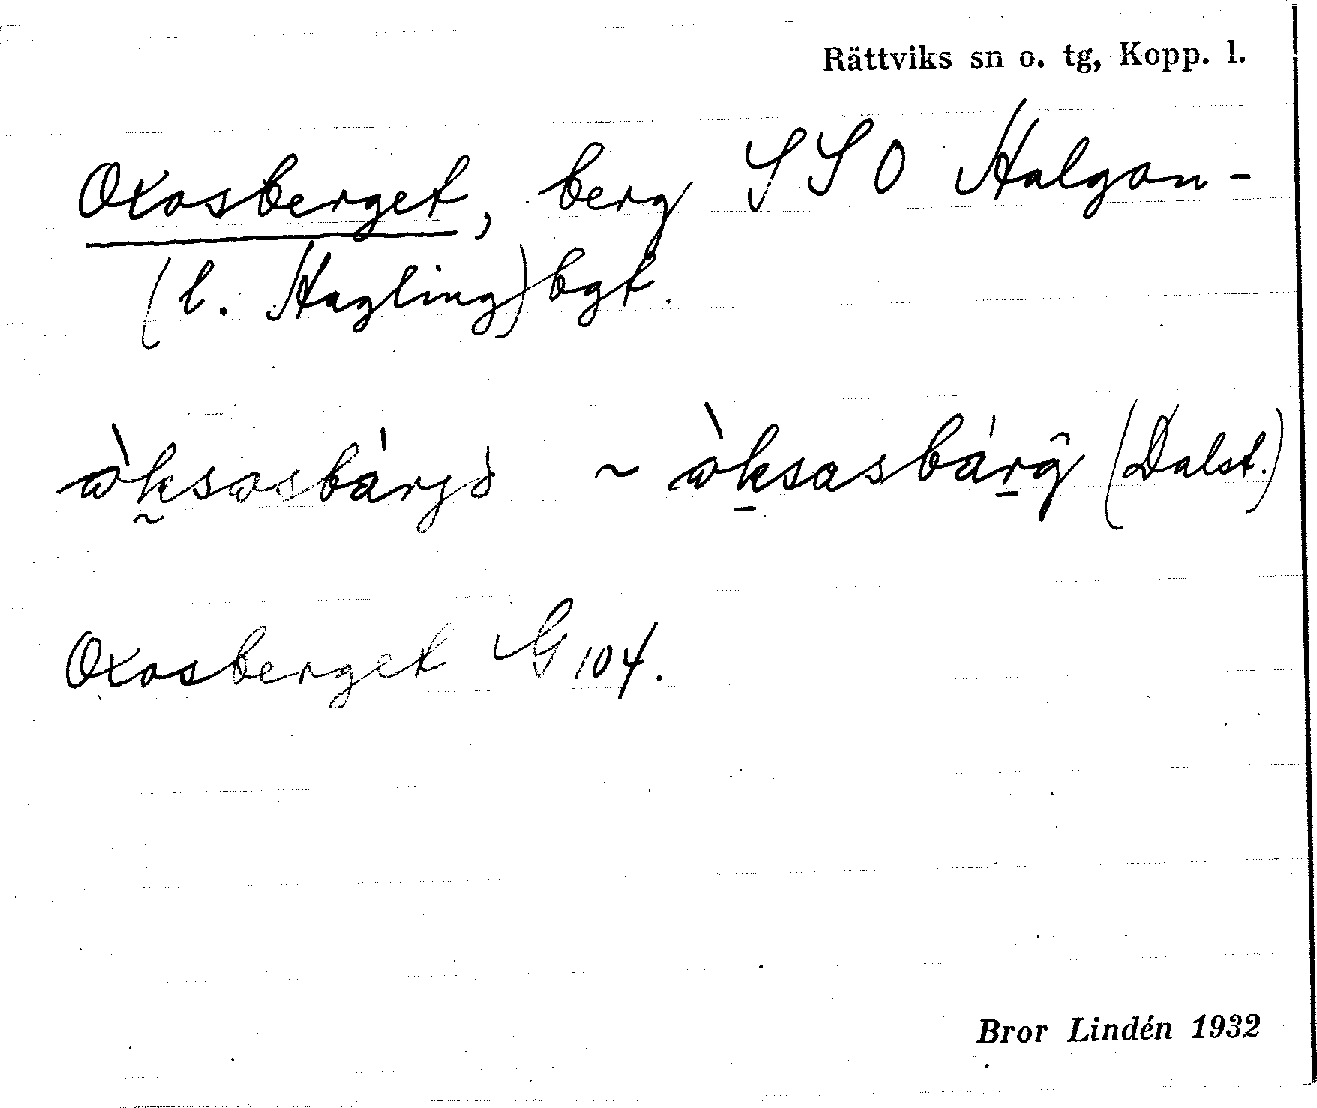 Rättviks sn o. tg, Kopp. l.
Oxasberget, berg SSO Halgon-
(l. Hagling)bgt.
òksasbá̀rjə̀ ~ òksasbá̀rg̑ (Dalst.)
Oxasberget G 104.
Bror Lindén 1932